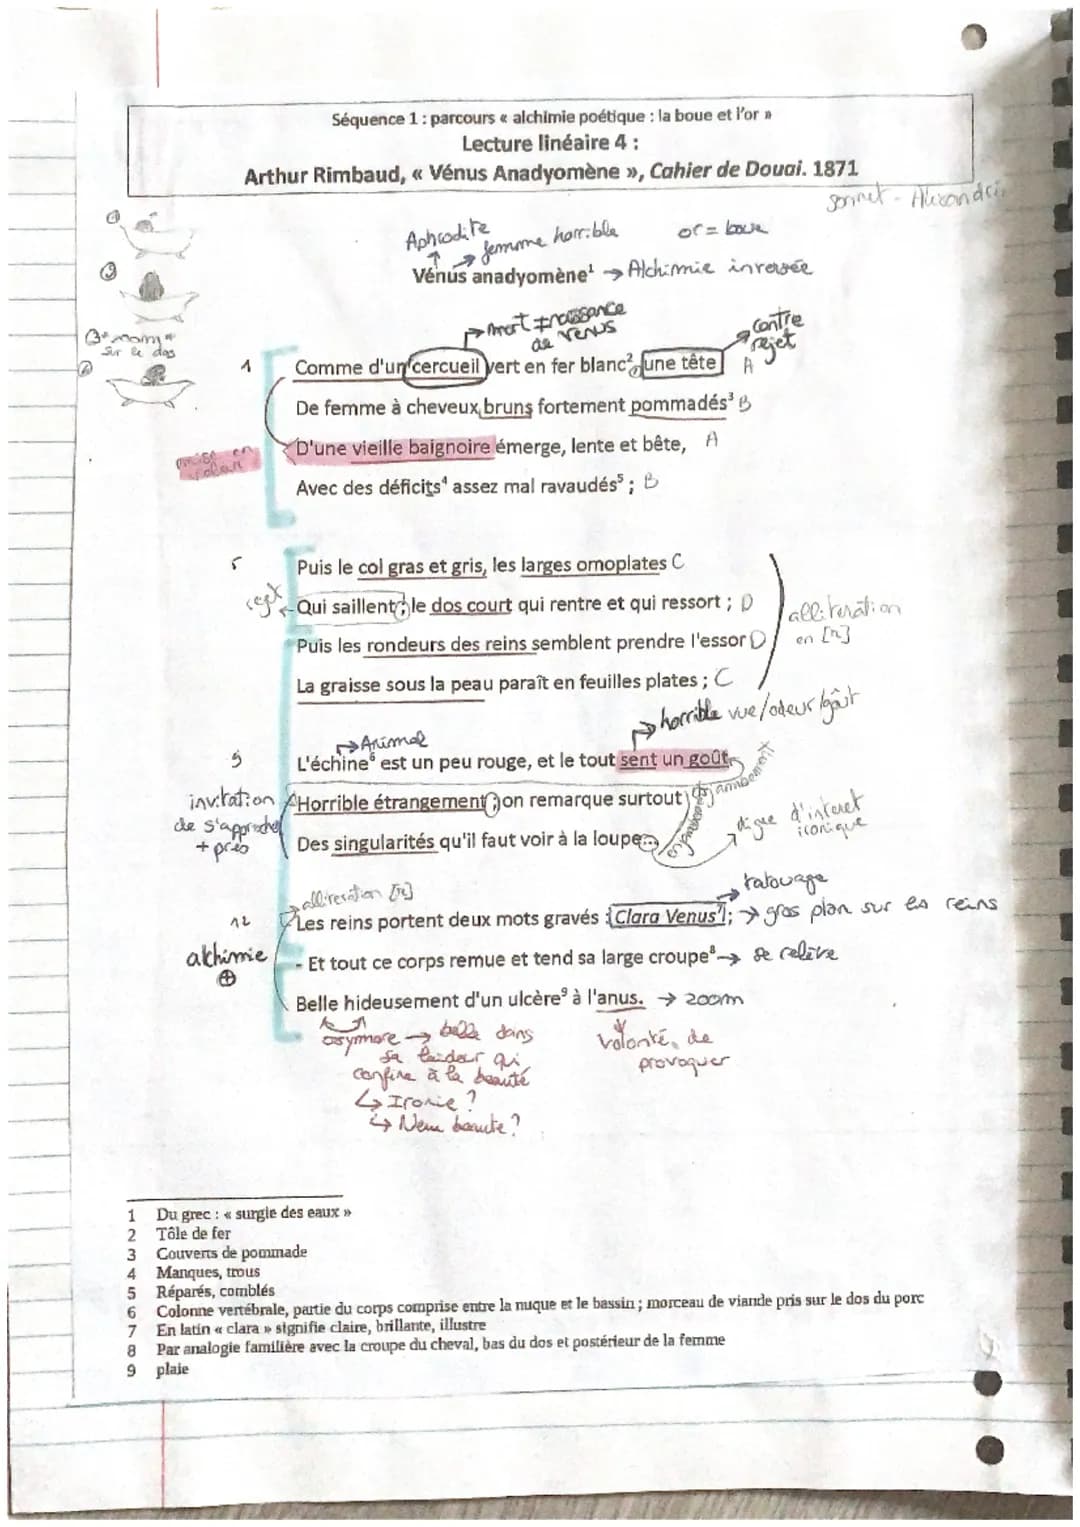 Séquence 1 : parcours « alchimie poétique : la boue et l'or »
Lecture linéaire 4 :
Arthur Rimbaud, « Vénus Anadyomène », Cahier de Douai. 1871
sonnet - Alexandrin
Aphrodite
femme horrible
or = boue
Vénus anadyomène¹ → Alchimie inversée
① 
②
→ mort ≠ naissance de venus
contre rejet
③
sur le dos
1 Comme d'un cercueil vert en fer blanc², une tête A
De femme à cheveux bruns fortement pommadés³ B
D'une vieille baignoire émerge, lente et bête, A
mise en
Avec des déficits⁴ assez mal ravaudés⁵ ; B
5 Puis le col gras et gris, les larges omoplates C
rejet ← Qui saillent ; le dos court qui rentre et qui ressort ; D
allitération en [r]
Puis les rondeurs des reins semblent prendre l'essor D
La graisse sous la peau paraît en feuilles plates ; C
→ horrible vue/odeur/goût
→ Animal
9 L'échine⁶ est un peu rouge, et le tout sent un goût
enjambement
invitation de s'approcher + près
Horrible étrangement ; on remarque surtout
enjambement
Des singularités qu'il faut voir à la loupe...
digne d'interet iconique
→ alliteration [r]
→ tatouage
12 Les reins portent deux mots gravés : Clara Venus⁷ ; → gros plan sur les reins
alchimie ⊕
- Et tout ce corps remue et tend sa large croupe⁸ → se relève
Belle hideusement d'un ulcère⁹ à l'anus. → zoom
oxymore → belle dans
sa laideur qui
confine à la beauté
↳ Ironie ?
↳ New beauté ?
volonté de
provoquer
1 Du grec : « surgie des eaux »
2 Tôle de fer
3 Couverts de pommade
4 Manques, trous
5 Réparés, comblés
6 Colonne vertébrale, partie du corps comprise entre la nuque et le bassin ; morceau de viande pris sur le dos du porc
7 En latin « clara » signifie claire, brillante, illustre
8 Par analogie familière avec la croupe du cheval, bas du dos et postérieur de la femme
9 plaie